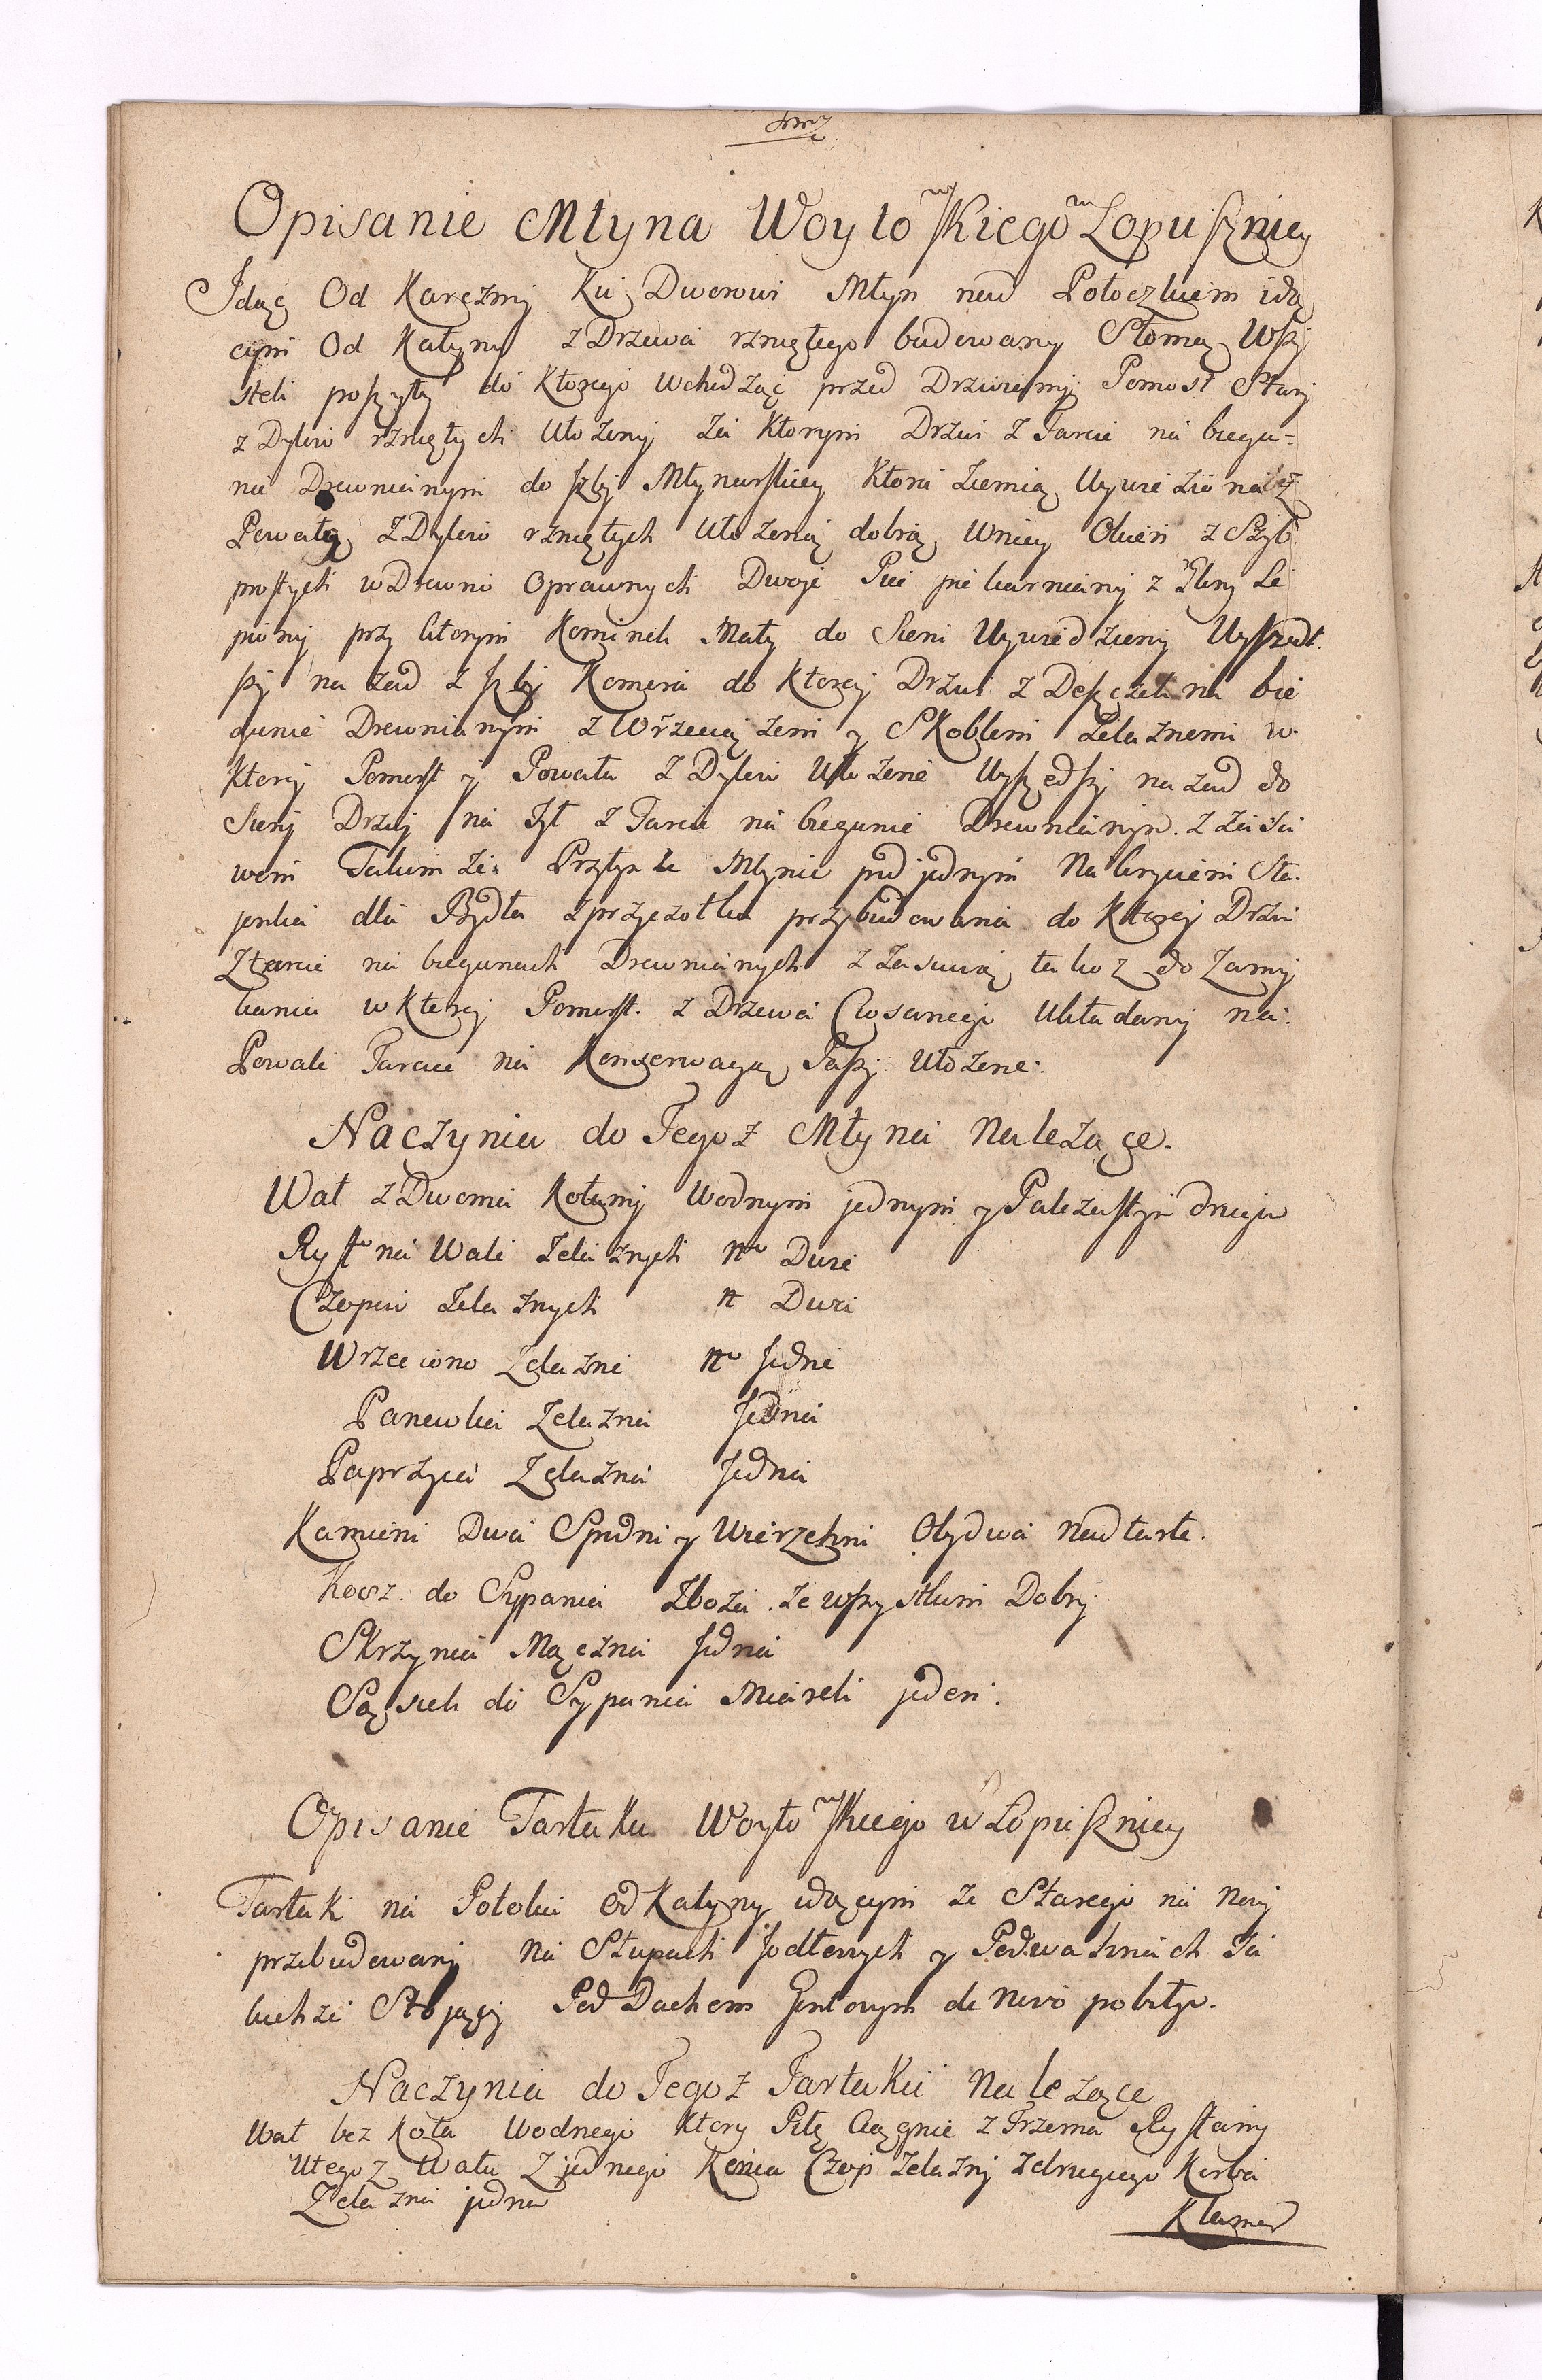 Opisanie Młyna Woytowskiego w Łopuszney
Idąc Od Karczmy Ku Dworowi Młyn nad Potoczkiem idą
cym Od Katyny z Drzewa rzniętego budowany Słomą Wszy
steli poszyty do Ktorego Wchodząc przed Drzwiamy Pomost Stary
z Dylow rzniętych Ułożony Za Ktorym Drzwi z Tarcic na biegu=
nie Drewnianym do Izby Młynarskiey Ktora Ziemią Wywieziona z
Powałą z Dylow rzniętych Ułożoną dobrą Wniey Okien z Szyb
prostych w Drewno Oprawnych Dwoje Piec piekarniany z Gliny Le
piony przy ktorym Kominek Mały do Sieni Wywiedziony Wyszedł
szy na zad z Izby Komora do Ktorey Drzwi z Deszczek na bie
gunie Drewnianym z Wrzeciążem y Skoblem Zelaznemi w
Ktorey Pomost y Powała z Dylow Ułożone Wyszedszy na zad do
Sieny Drzwy na Tył z Tarcic na biegunie Drewnianym z Zasu
wom Takimże Przytym że Młynie pod jednym Nakryciem Sta
jenka dla Bydła z przyczołka przybudowana do Ktorey Drzwi
z tarcic na biegunach Drewnianych z Zasuwą takoż do Zamy
kania w Ktorey Pomost z Drzewa Ciosanego Układany na
Powale Tarcice na Konserwacyą Paszy Ułożone
Naczynia do Tegoż Młyna Należące.
Wał z Dwoma Kołamy Wodnym jednym y Paleczastym drugim
Ryf na Wale Zelaznych No Dwie
Czopow Zelaznych N Dwa
Wrzeciono Zelazne No Jedne
Panewka Zelazna Jedna
Paprzyca Zelazna Jedna
Kamieni Dwa Spodni y Wierzchni Obydwa Nadtarte.
Kosz do Sypania Zboża ze wszystkim Dobry
Skrzynia Mączna Jedna
Sąsiek do Sypania Miarek jeden.
Opisanie Tartaku Woytowskiego w Łopuszney
Tartak na Potoku od Katyny idącym ze Starego na Nowy
przebudowany na Słupach Jodłowych y Podwalinach Ta
kichże Stojący Pod Dachem Gontowym de Novo pobitym.
Naczynia do Tegoż Tartaku Należące
Wał bez Koła Wodnego Ktory Piłę Ciągnie z Trzema Ryfamy
U tegoż Wału z jednego Końca Czop Zelazny z drugiego Korba
Zelazna jedna
Klamer